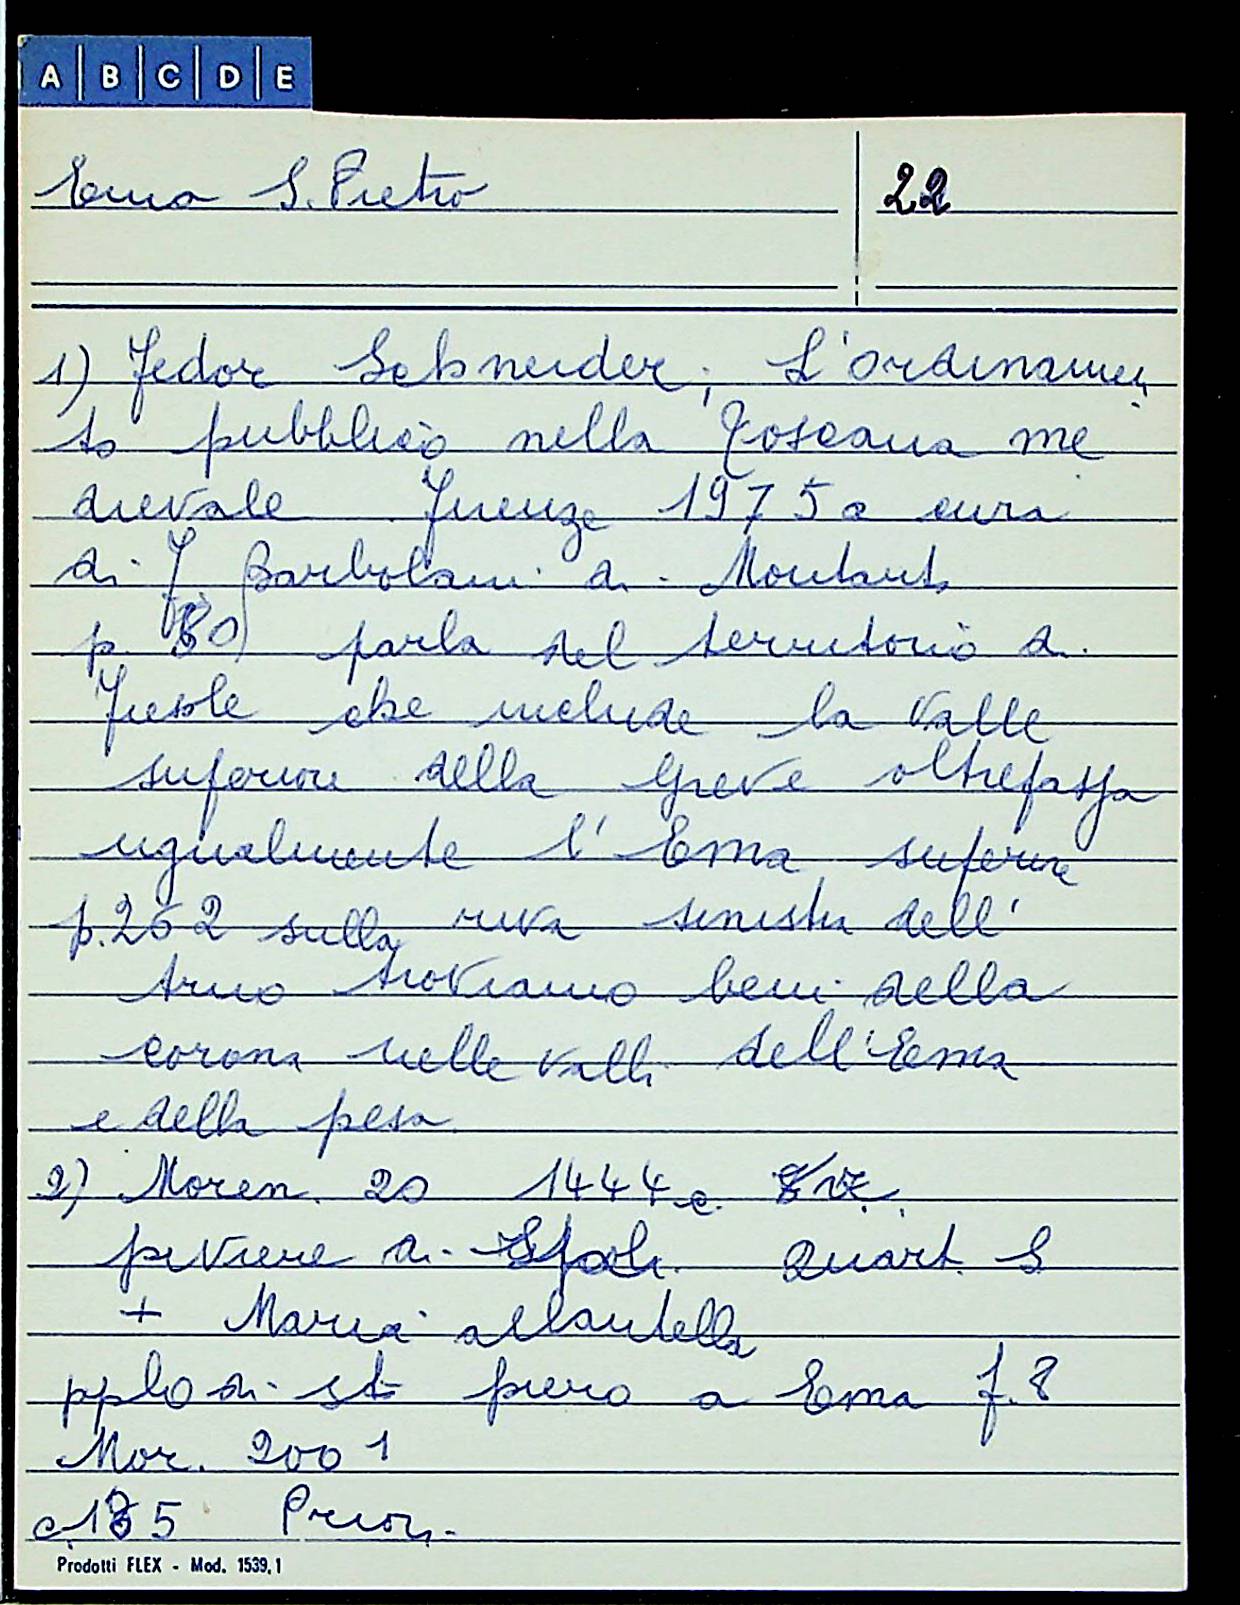 A B C D E
Ema S. Pietro 22
1) Fedor Schneider; L'ordinamen
to pubblico nella Toscana me
dievale Firenze 1975 a cura
di F Barbolani di Montauto
p. 80) parla del territorio di
Fiesole che include la valle
superiore della Greve oltrepassa
ugualmente l'Ema superiore
p. 262 sulla riva sinistra dell'
Arno troviamo beni della
corona nelle valli dell'Ema
e della pesa
2) Moren. 20 1444 c.
piviere di Quart. S
+ Maria allantella
pplo di sto piero a Ema f. 8
Mor. 200 1
c. 5 Prior.
Prodotti FLEX - Mod. 1539,1